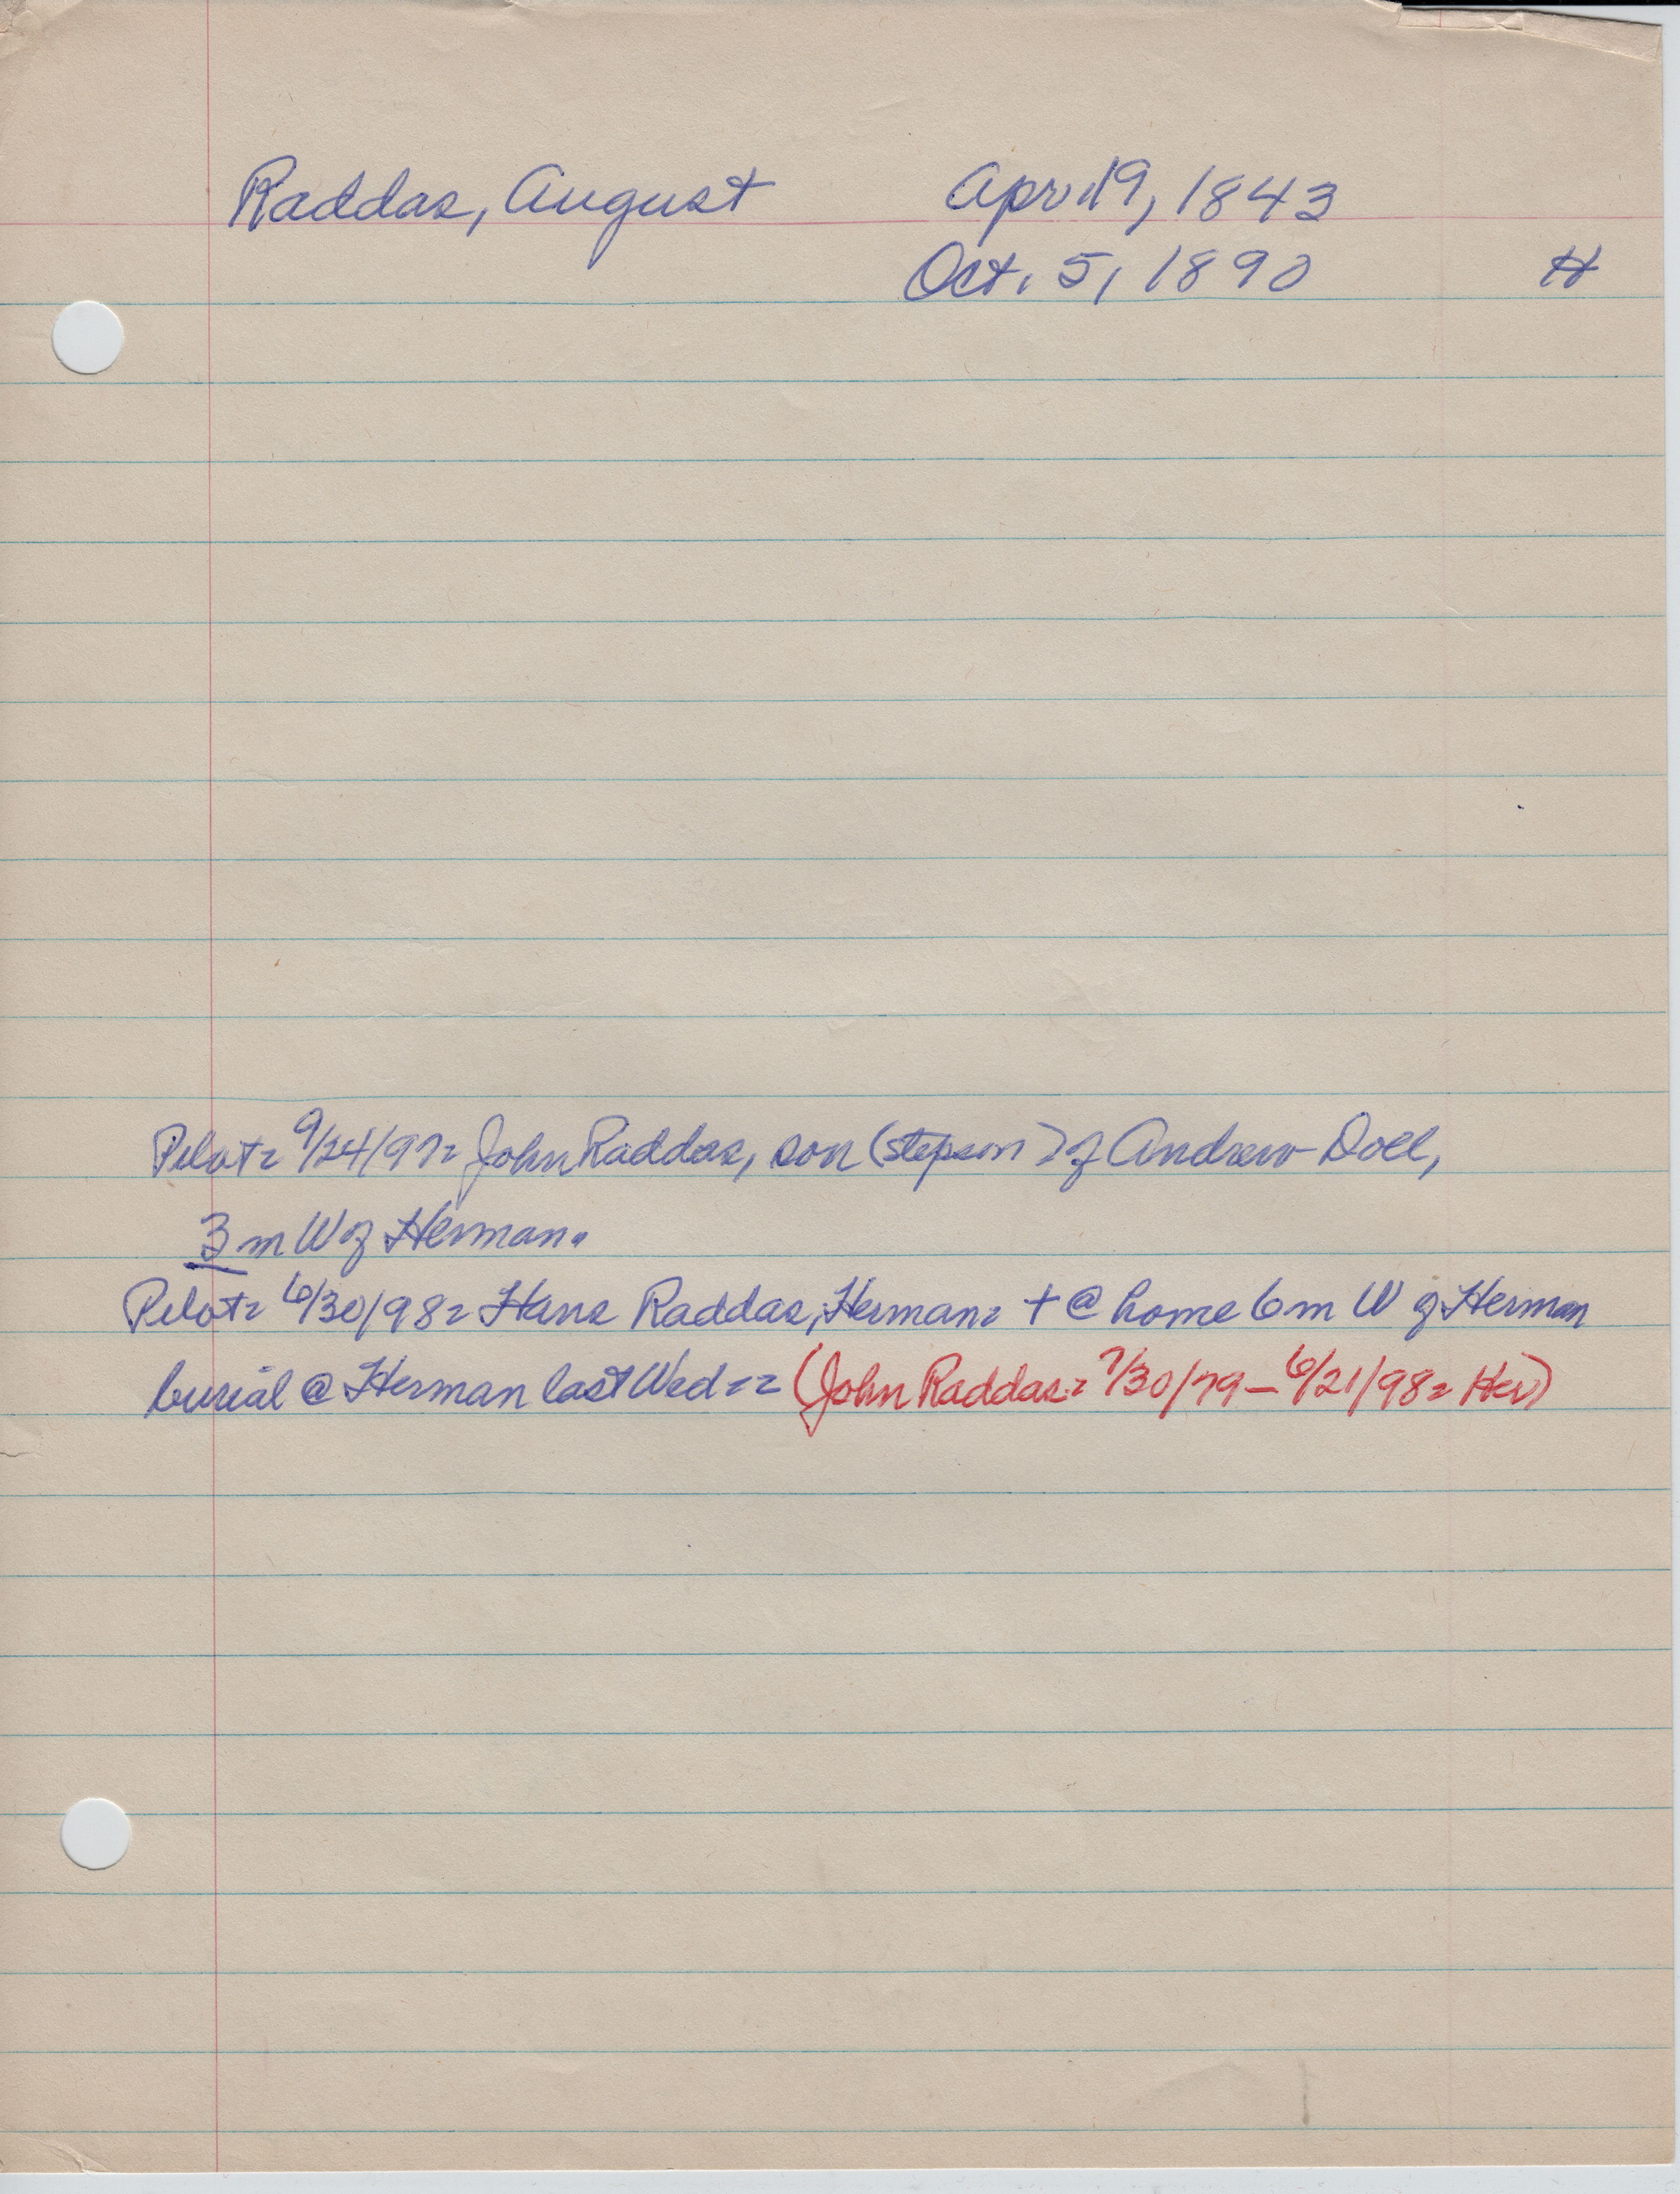 Raddas, August April 9, 1843
Oct. 5, 1890 H
Pilot= 9/24/97= John Raddas, son (stepson?) of Andrew Doll,
3 m W of Herman.
Pilot= 6/30/98= Hans Raddas, Herman= + @ home 6 m W of Herman
burial @ Herman last Wed== (John Raddas= 7/30/79–6/21/98= Her)